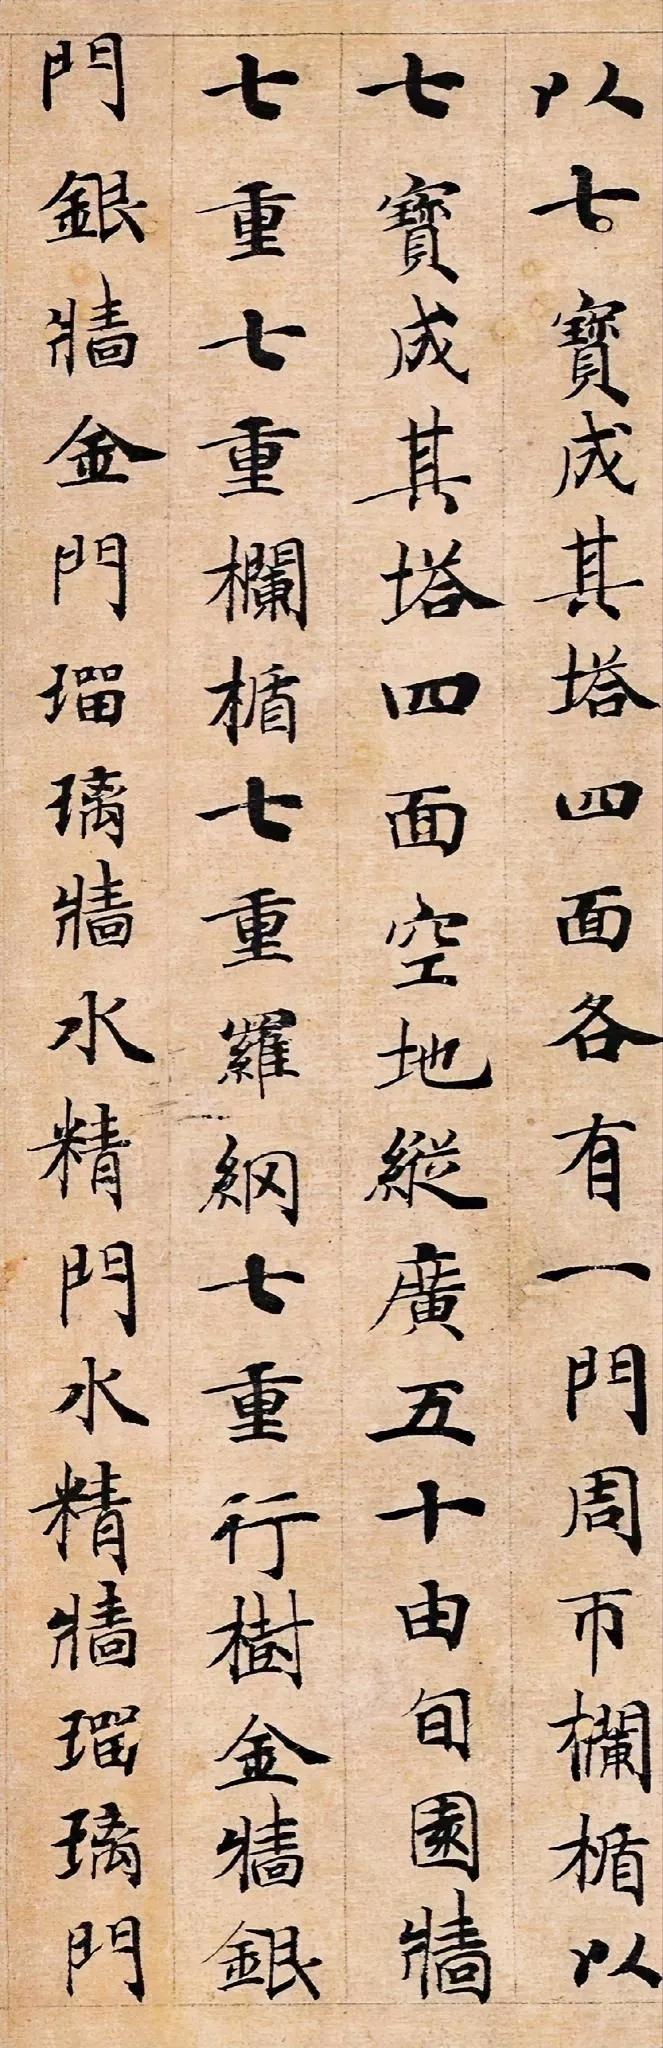 以七寶成其塔四面各有一門周帀欄楯以
七寶成其塔四面空地縱廣五十由旬園牆
七重七重欄楯七重羅網七重行樹金牆銀
門銀牆金門瑠璃牆水精門水精牆瑠璃門